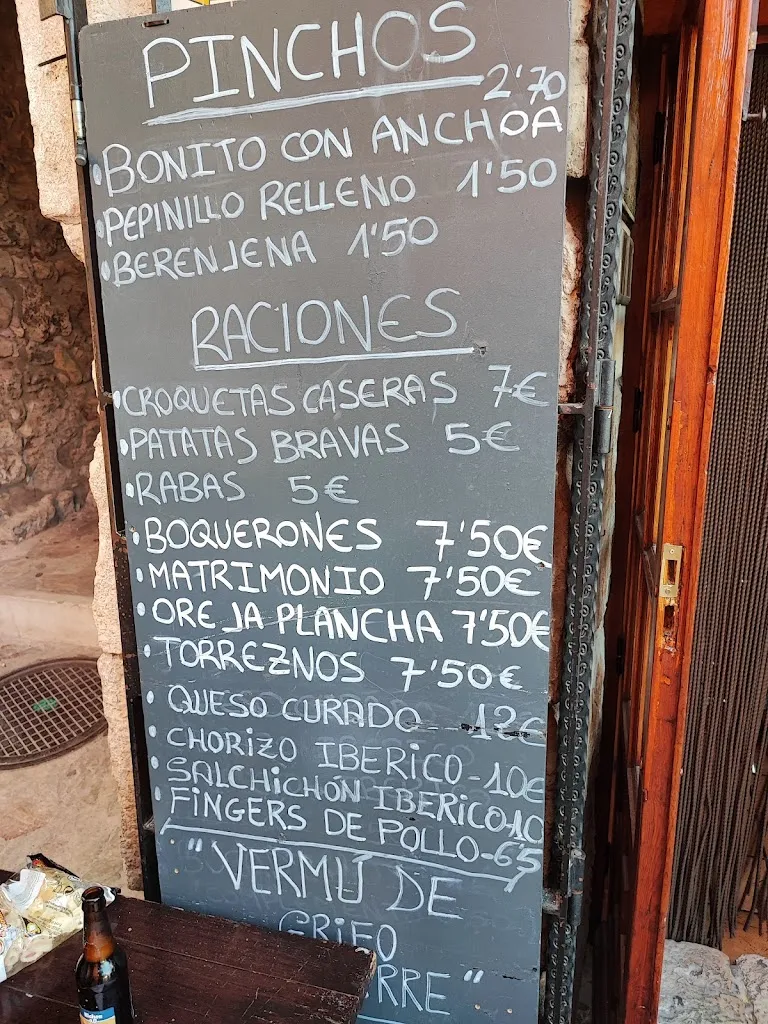 PINCHOS
2'70
BONITO CON ANCHOA
PEPINILLO RELLENO 1'50
BERENJENA 1'50
RACIONES
CROQUETAS CASERAS 7€
PATATAS BRAVAS 5€
RABAS 5€
BOQUERONES 7'50€
MATRIMONIO 7'50€
OREJA PLANCHA 7'50€
TORREZNOS 7'50€
QUESO CURADO 12€
CHORIZO IBERICO-10€
SALCHICHÓN IBERICO-10
FINGERS DE POLLO-
"VERMÚ DE
GRIFO